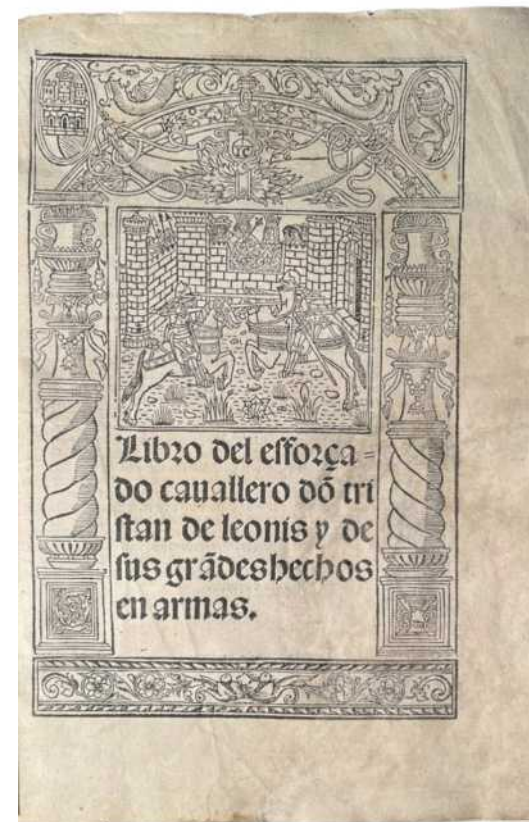 Libro del efforça=
do cauallero dõ tri
ſtan de leonis y de
ſus grãdes hechos
en armas.